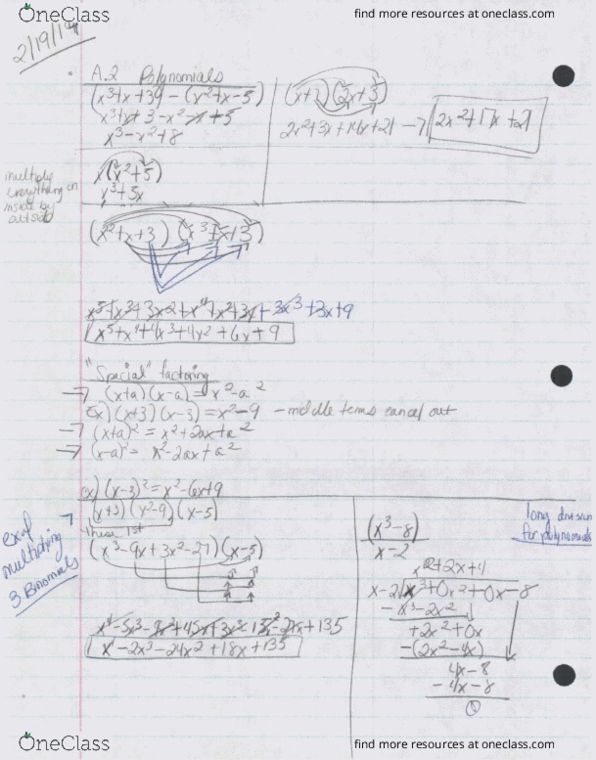 OneClass
find more resources at oneclass.com
2/19/19
A.2 Polynomials
(x³+x+39) - (x²+x-5)
x³+x+3-x²-x+5
x³-x²+8
(x+7)(2x+3)
2x²+3x+14x+21 → 2x²+17x+21
multiply
everything on
inside by
outside
x(x²+5)
x³+5x
(x²+x+3)(x³+x+3)
x⁵+x³+3x²+x⁴+x²+3x+3x³+3x+9
x⁵+x⁴+4x³+4x²+6x+9
"Special" factoring
→ (x+a)(x-a)=x²-a²
ex) (x+3)(x-3)=x²-9 - middle terms cancel out
→ (x+a)²=x²+2ax+a²
→ (x-a)²= x²-2ax+a²
ex) (x-3)²=x²-6x+9
(x+3)(x²-9)(x-5)
these 1st
ex of
multiplying
3 Binomials
(x³-9x+3x²-27)(x-5)
x⁴-5x³-9x²+45x+3x³-15x²-27x+135
x⁴-2x³-24x²+18x+135
long division
for polynomials
(x³-8)
x-2
x²+2x+4
x-2 x³+0x²+0x-8
- x³-2x²
+2x²+0x
-(2x²-4x)
4x-8
- 4x-8
0
OneClass
find more resources at oneclass.com